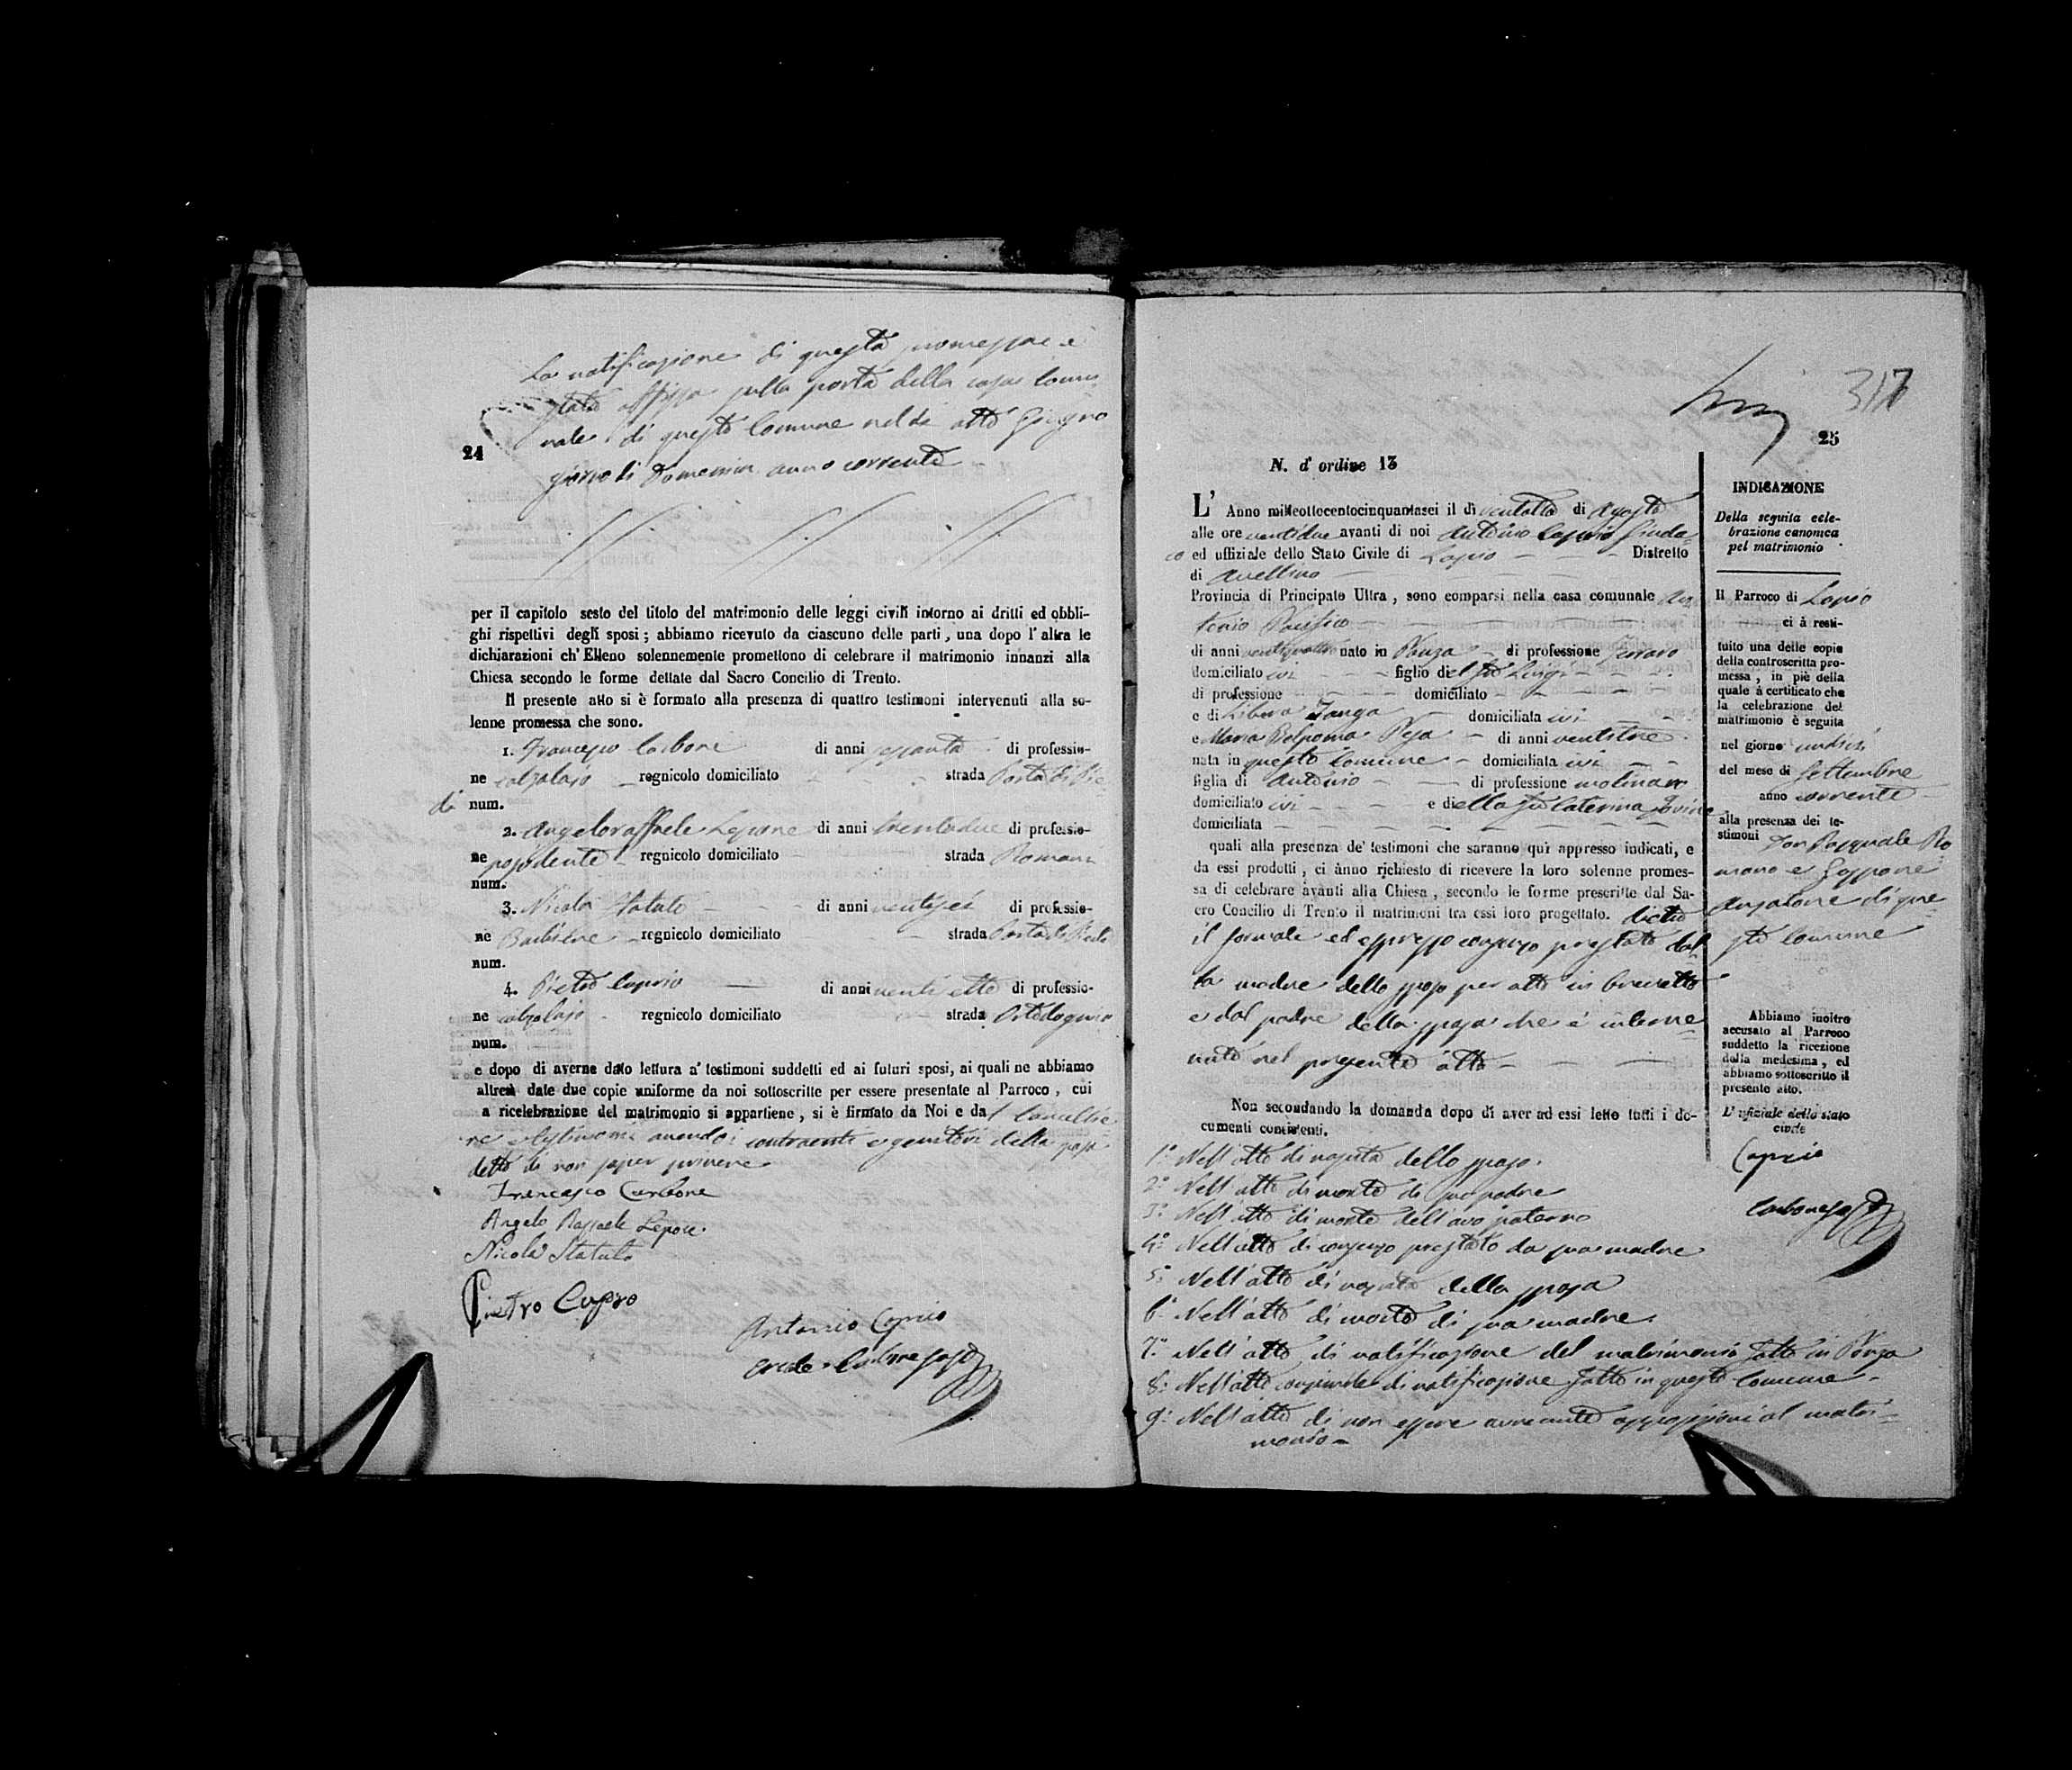 La notificazione di questa promessa è
stata affissa sulla porta della casa Comu
nale di questo Comune nel dì otto Giugno
giorno di Domenica anno corrente
24
per il capitolo sesto del titolo del matrimonio delle leggi civili intorno ai dritti ed obbli-
ghi rispettivi degli sposi ; abbiamo ricevuto da ciascuno delle parti , una dopo l' altra le
dichiarazioni ch' Elleno solennemente promettono di celebrare il matrimonio innanzi alla
Chiesa secondo le forme dettate dal Sacro Concilio di Trento.
Il presente atto si è formato alla presenza di quattro testimoni intervenuti alla so-
lenne promessa che sono.
1. Francesco Carbone di anni sessanta di professio-
ne calzolajo regnicolo domiciliato strada Porta di Pie
di num.
2. Angeloraffaele Lepore di anni trentadue di professio-
ne possidente regnicolo domiciliato strada Romani
num.
3. Nicola Statuto di anni ventisei di professio-
ne Barbiere regnicolo domiciliato strada Porta di Piedi
num.
4. Pietro Caprio di anni venti otto di professio-
ne calzolajo regnicolo domiciliato strada
num.
e dopo di averne dato lettura a' testimoni suddetti ed ai futuri sposi, ai quali ne abbiamo
altresì date due copie uniforme da noi sottoscritte per essere presentate al Parroco , cui
a ricelebrazione del matrimonio si appartiene , si è firmato da Noi e dal Cancellie
re e testimoni avendo i contraenti e genitori della sposa
detto di non saper scrivere
Francesco Carbone
Angelo Raffaele Lepore
Nicola Statuto
Pietro Caprio
Antonio Caprio
Carbone
317
25
N. d' ordine 13
L' Anno milleottocentocinquantasei il dì ventotto di Agosto
alle ore ventidue avanti di noi Antonio Caprio Sinda=
co ed uffiziale dello Stato Civile di Lapio Distretto
di Avellino
Provincia di Principato Ultra , sono comparsi nella casa comunale An
tonio Pacifico
di anni ventiquattro nato in Panza di professione Ferraro
domiciliato ivi figlio del fu Luigi
di professione domiciliato
e di Libera Tanga domiciliata ivi
e Maria Belpoma Pesa di anni ventitre
nata in questo Comune domiciliata ivi
figlia di Antonio di professione molinaro
domiciliato ivi e della fu Caterina Iovine
domiciliata
quali alla presenza de' testimoni che saranno qui appresso indicati, e
da essi prodotti , ci ànno richiesto di ricevere la loro solenne promes-
sa di celebrare avanti alla Chiesa , secondo le forme prescritte dal Sa-
cro Concilio di Trento il matrimoni tra essi loro progettato. dietro
il formale ed espresso consenso prestato dal
la madre dello sposo per atto in brevetto
e dal padre della sposa che è interve
nuto nel presente atto
Non secondando la domanda dopo di aver ad essi letto tutti i do-
cumenti consistenti.
1.° Nell'atto di nascita dello sposo.
2.° Nell'atto di morte di suo padre
3.° Nell'atto di morte dell'avo paterno
4.° Nell'atto di consenso prestato da sua madre
5.° Nell'atto di nascita della sposa
6.° Nell'atto di morte di sua madre
7.° Nell'atto di notificazione del matrimonio fatto in Panza
8.° Nell'atto consimile di notificazione fatto in questo Comune
9.° Nell'atto di non essere avvenute opposizioni al matri=
monio
INDICAZIONE
Della seguita cele-
brazione canonica
pel matrimonio
Il Parroco di Lapio
ci à resti-
tuito una delle copie
della controscritta pro-
messa , in piè della
quale à certificato che
la celebrazione del
matrimonio è seguita
nel giorno undici
del mese di Settembre
anno corrente
alla presenza dei te-
stimoni Don Pasquale Ro
mano e
di que
sto Comune
Abbiamo inoltre
accusato al Parroco
suddetto la ricezione
della medesima , ed
abbiamo sottoscritto il
presente atto.
L' ufiziale dello stato
civile
Caprio
Carbone